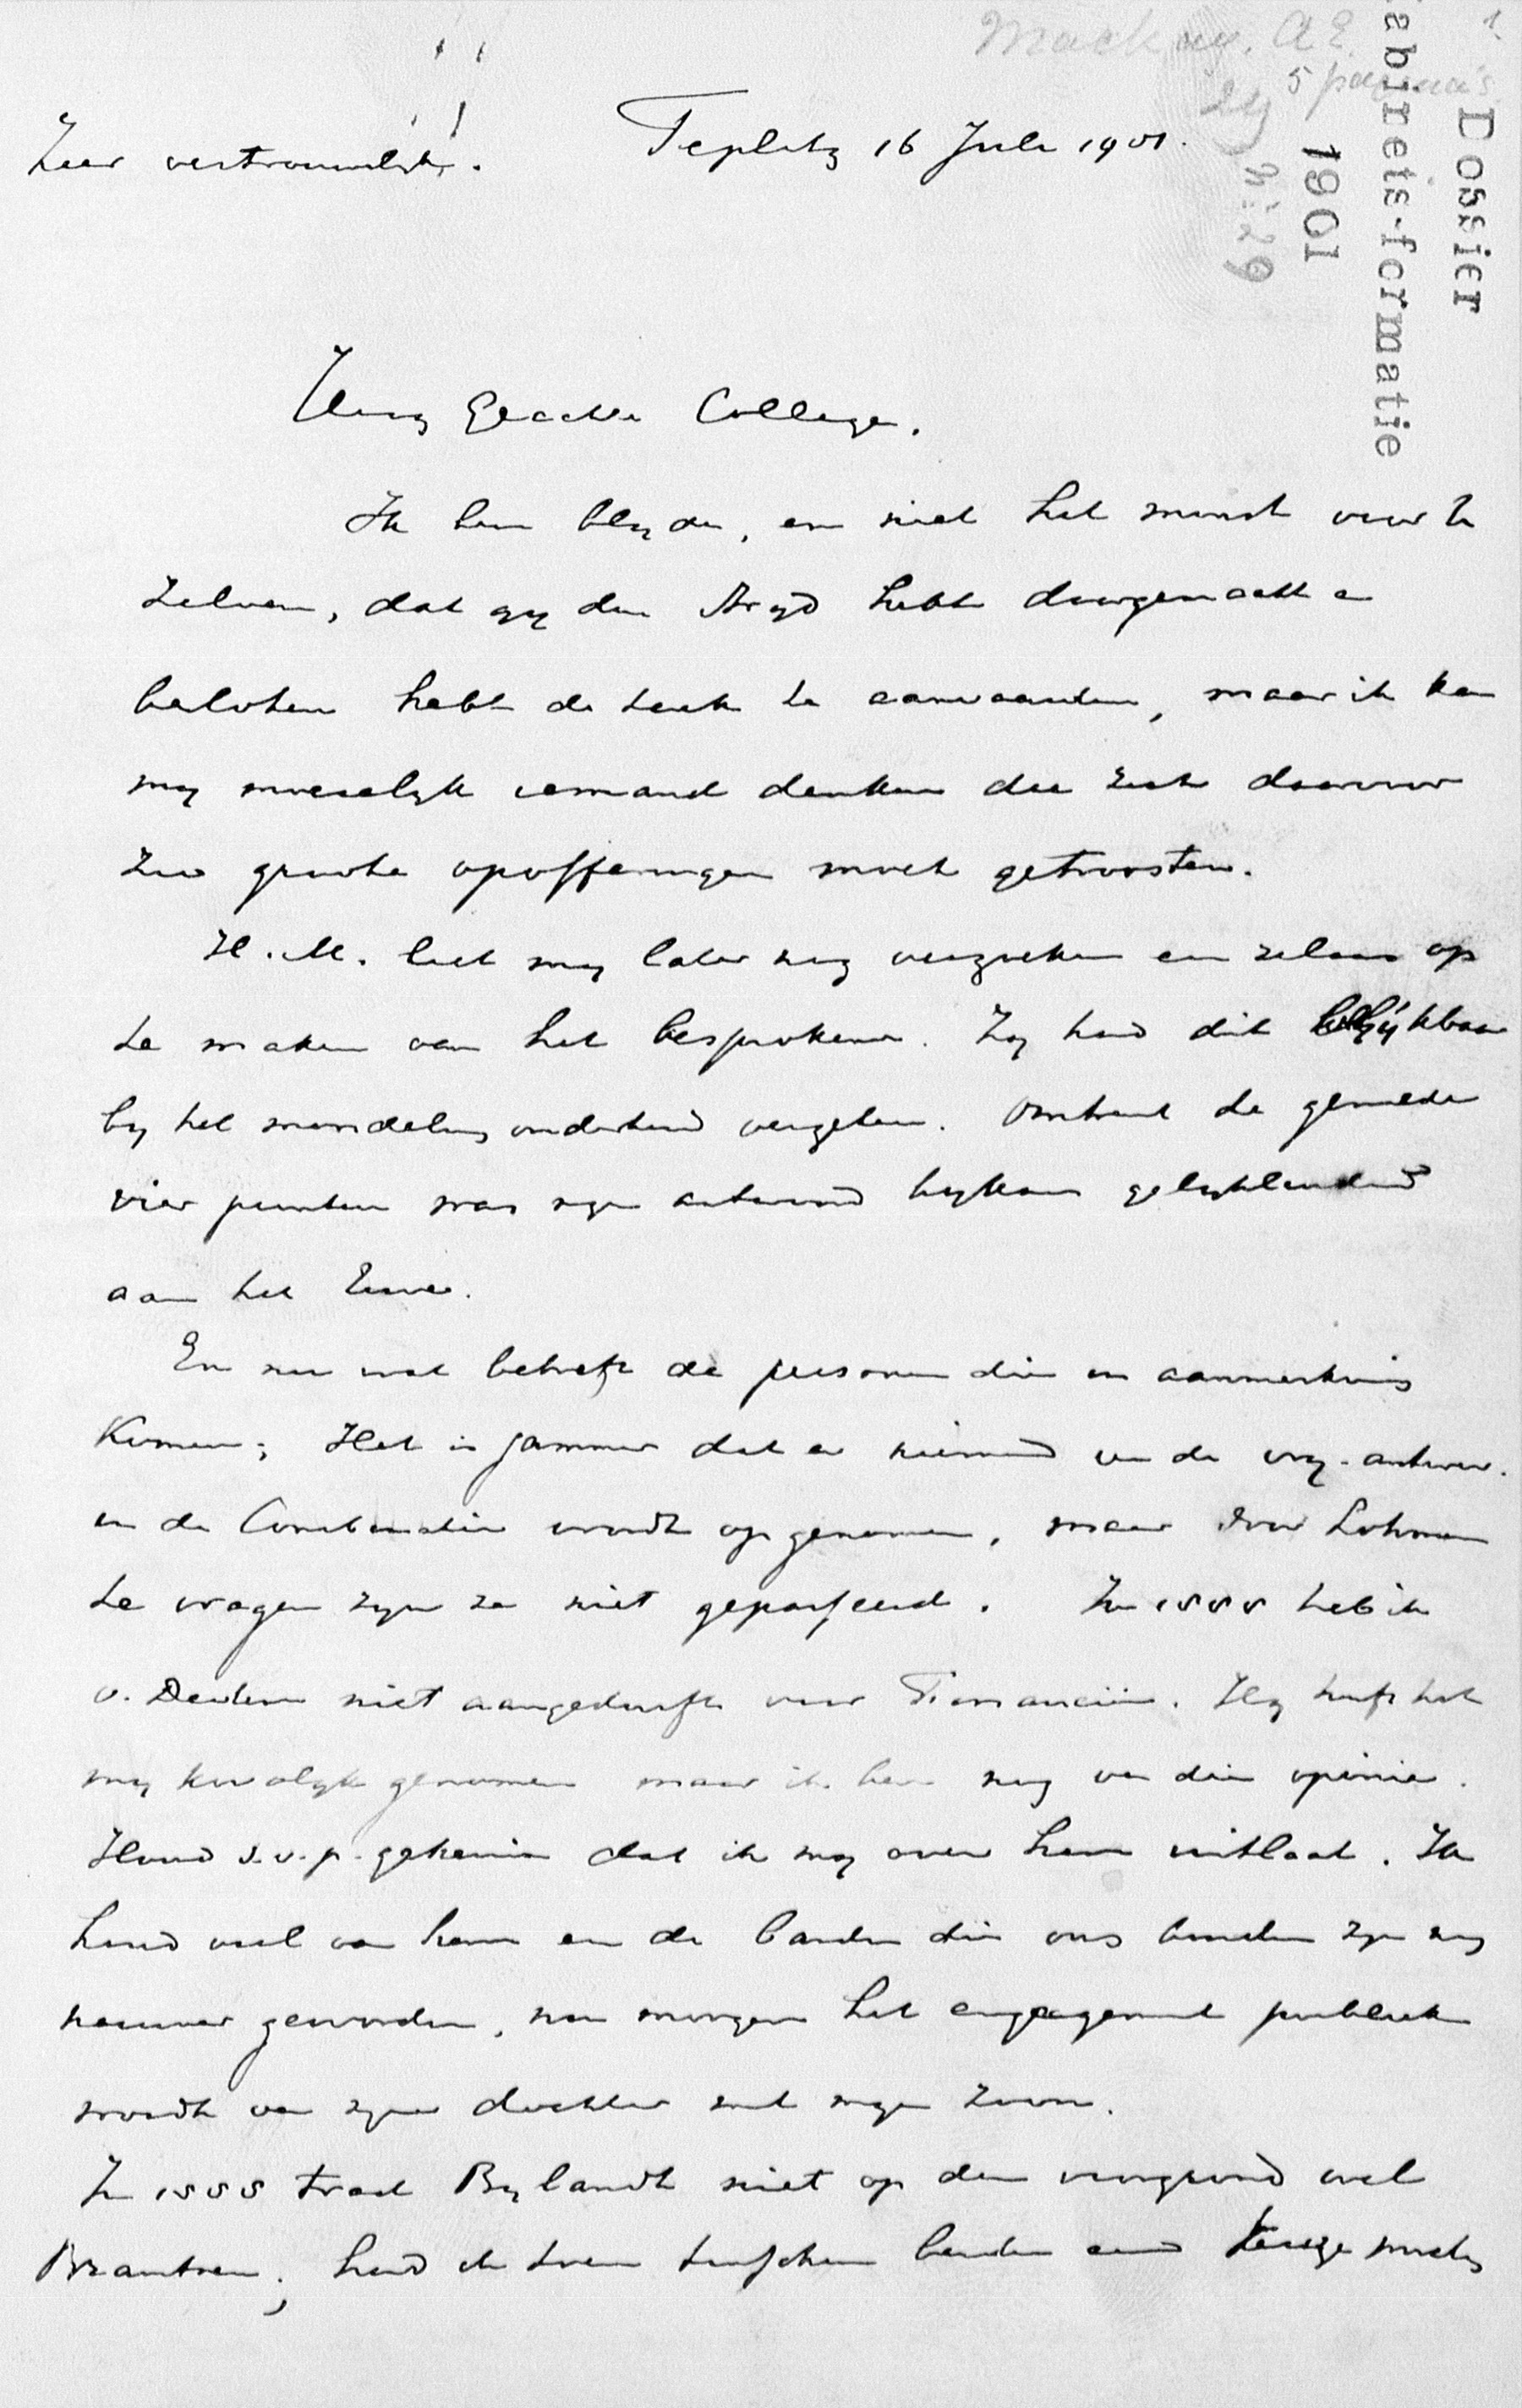 Mackay. A E.
1.
5 pagina's
Dossier
abinets-formatie
1901
No 29
Zeer vertrouwelijk.
Teplitz 16 Juli 1901.
Hoog Geachte Collega.
Ik ben blyde, en niet het minst voor U
zelven, dat gy den stryd hebt doorgemaakt en
besloten hebt de taak te aanvaarden, maar ik kan
my moeielyk iemand denken die zich daarvoor
zoo groote opofferingen moet getroosten.
H. M. liet my later nog verzoeken een relaas op
te maken van het besprokene. Zy had dit blijkbaar
by het mondeling onderhoud vergeten. Omtrent de gemelde
vier punten was myn antwoord bykans gelykluidend
aan het Uwe.
En nu wat betreft de personen die in aanmerking
komen; Het is jammer dat er niemand van de vry-antirev.
in de Combinatie wordt opgenomen, maar door Lohman
te vragen zyn ze niet gepasseerd. In 1888 heb ik
v. Dedem niet aangedurft voor Financiën. Hy heeft het
my kwalyk genomen maar ik ben nog van die opinie.
Houd s.v.p. geheim dat ik my over hem uitlaat. Ik
houd veel van hem en de banden die ons binden zyn nog
nauwer geworden, nu morgen het engagement publiek
wordt van zyne dochter met myn zoon.
In 1888 trad Bylandt niet op den voorgrond wel
Brantsen; had ik toen tusschen beiden een keuze moeten